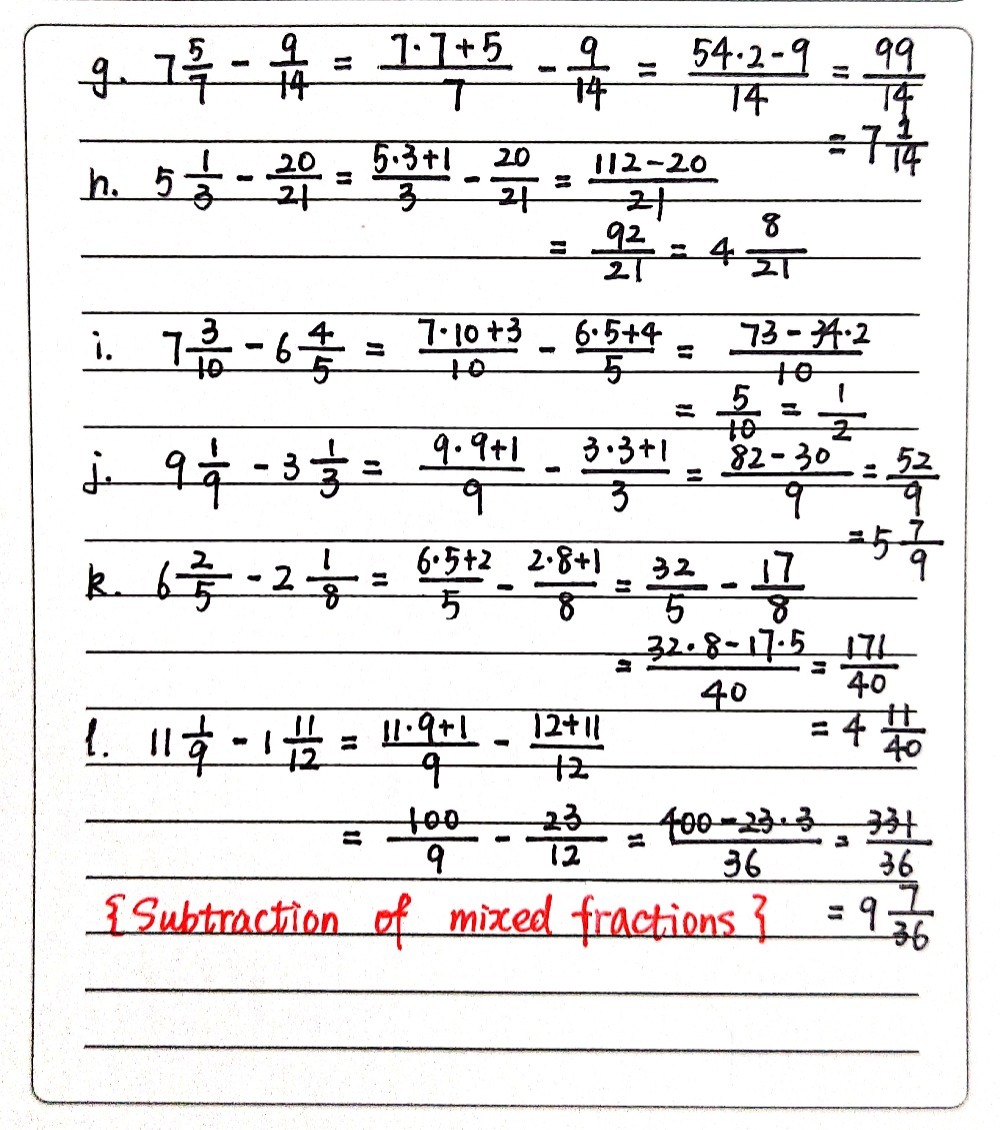 g. 7 5/7 - 9/14 = (7·7+5)/7 - 9/14 = (54·2-9)/14 = 99/14
= 7 1/14
h. 5 1/3 - 20/21 = (5·3+1)/3 - 20/21 = (112-20)/21
= 92/21 = 4 8/21
i. 7 3/10 - 6 4/5 = (7·10+3)/10 - (6·5+4)/5 = (73-34·2)/10
= 5/10 = 1/2
j. 9 1/9 - 3 1/3 = (9·9+1)/9 - (3·3+1)/3 = (82-30)/9 = 52/9
= 5 7/9
k. 6 2/5 - 2 1/8 = (6·5+2)/5 - (2·8+1)/8 = 32/5 - 17/8
= (32·8-17·5)/40 = 171/40
= 4 11/40
l. 11 1/9 - 1 11/12 = (11·9+1)/9 - (12+11)/12
= 100/9 - 23/12 = (400-23·3)/36 = 331/36
{Subtraction of mixed fractions} = 9 7/36